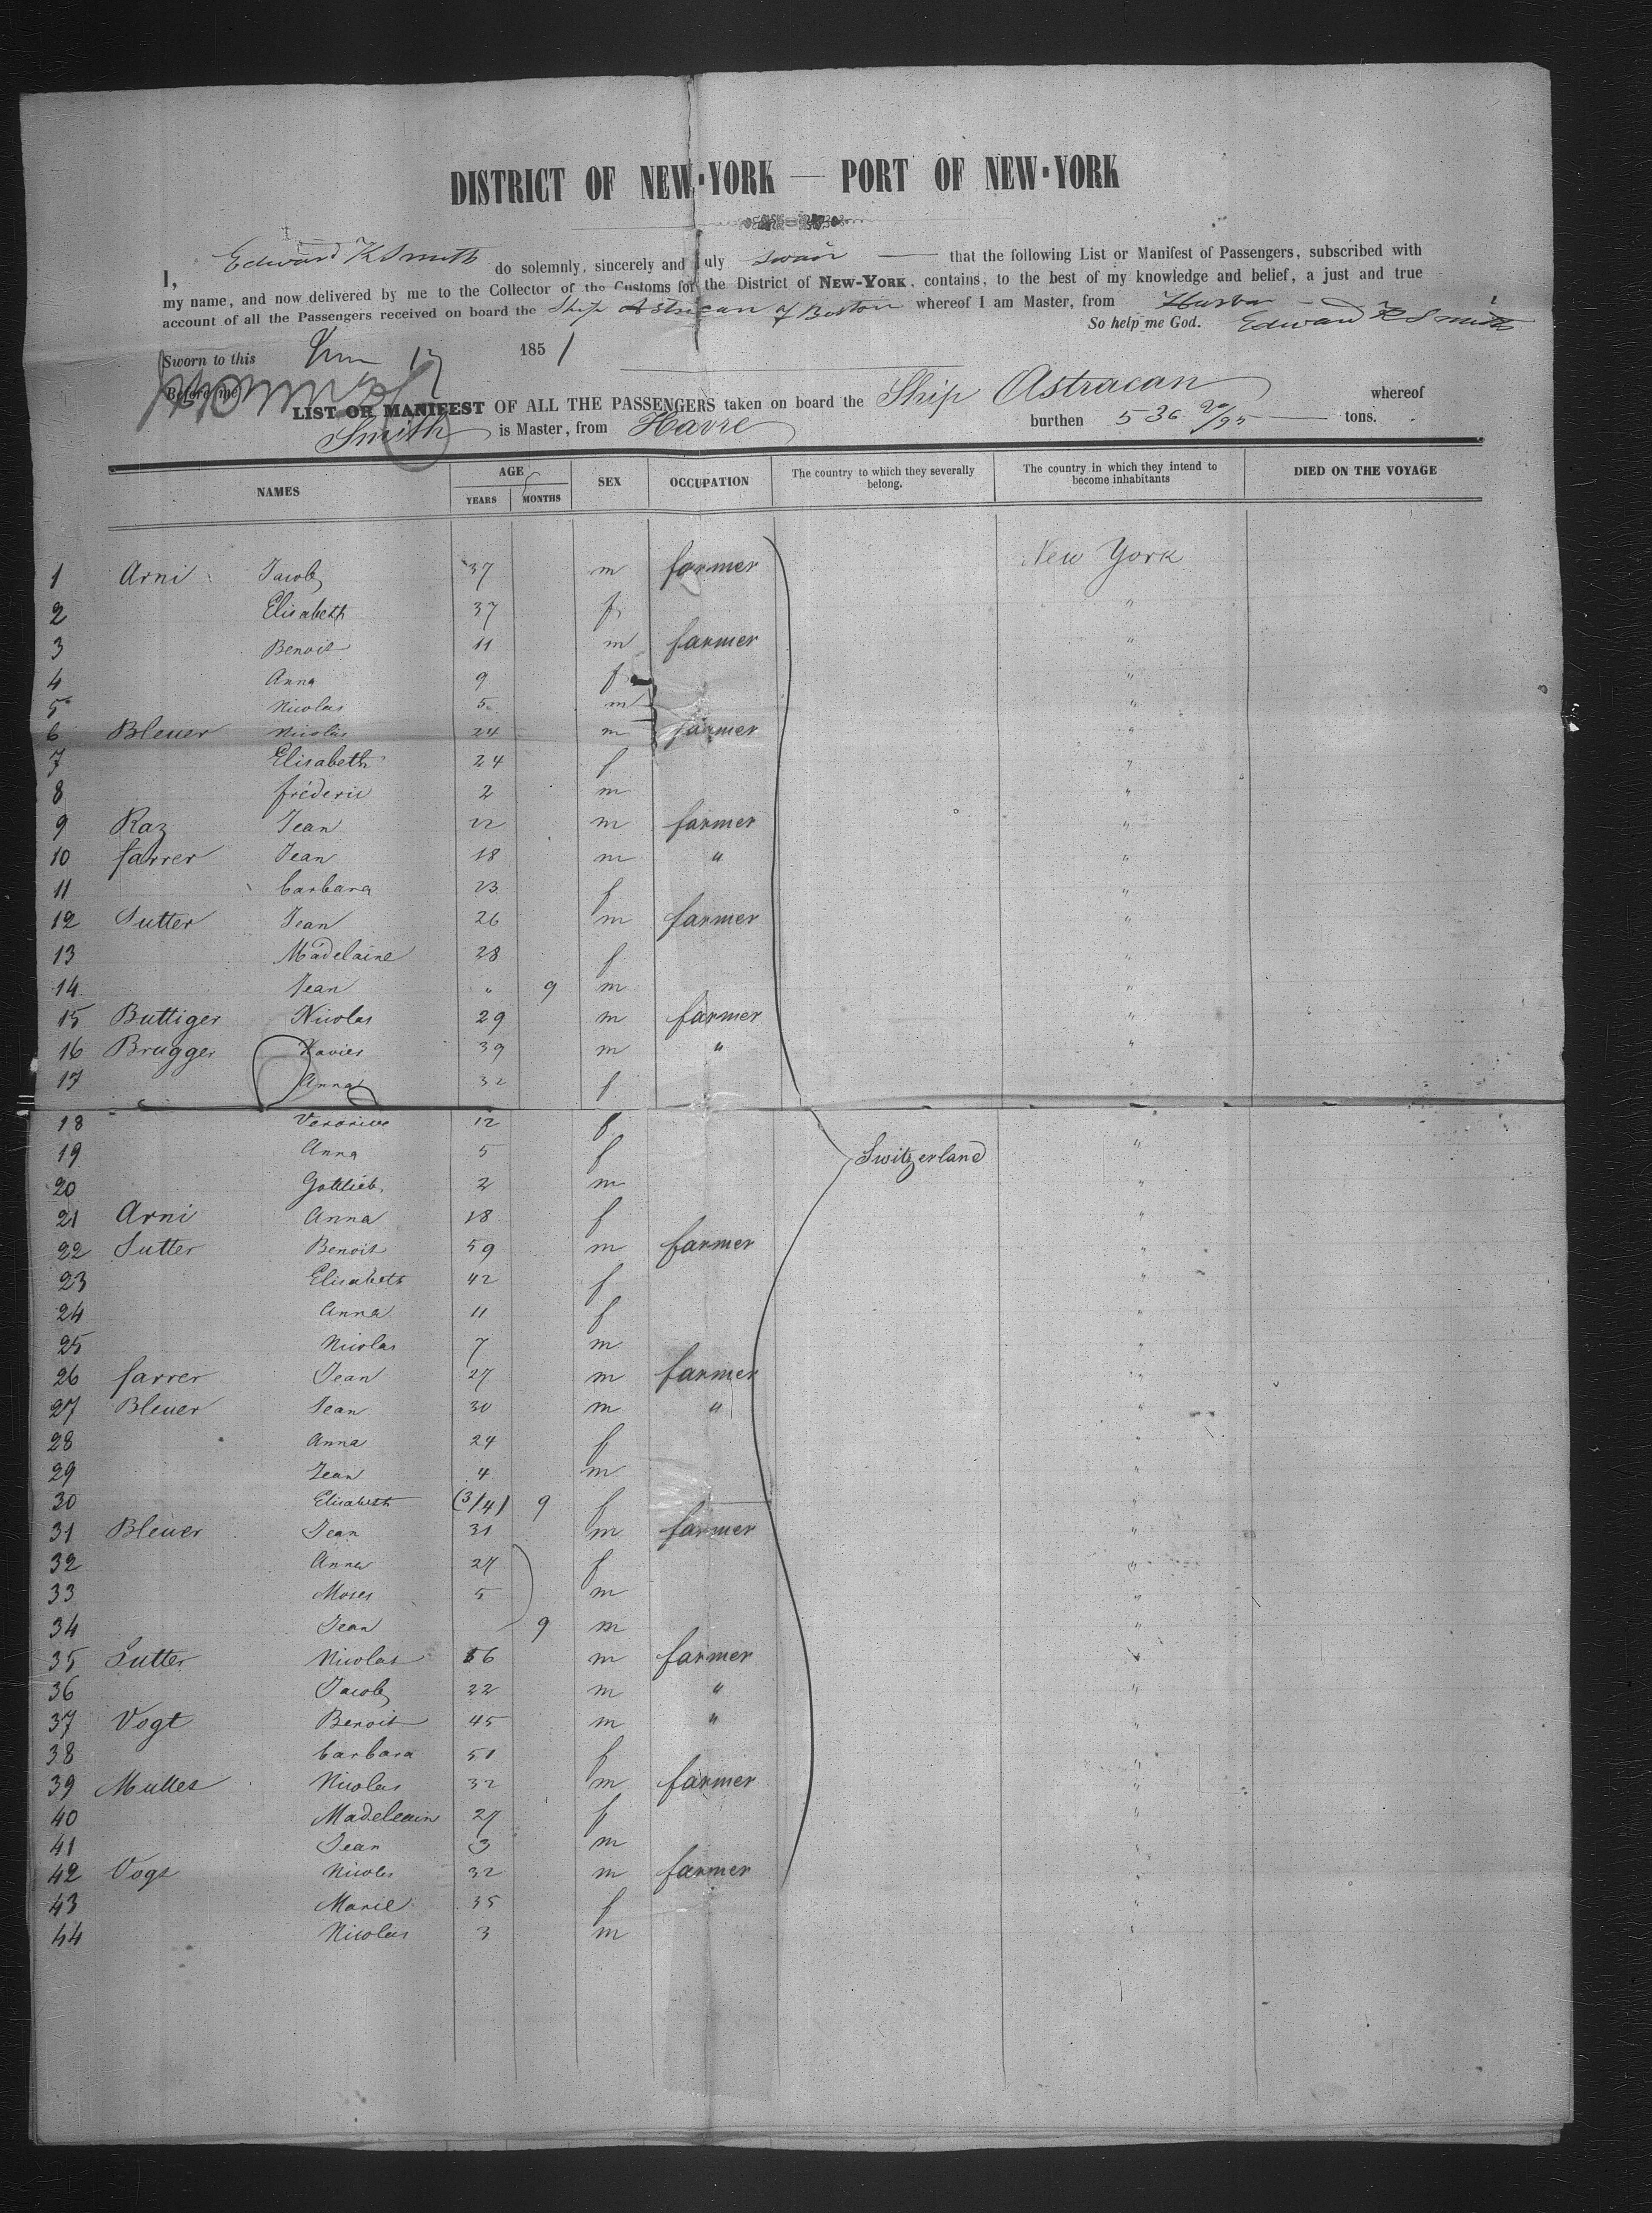 DISTRICT OF NEW-YORK — PORT OF NEW-YORK
I, Edward K Smith do solemnly, sincerely and duly swair that the following List or Manifest of Passengers, subscribed with
my name, and now delivered by me to the Collector of the Customs for the District of NEW-YORK, contains, to the best of my knowledge and belief, a just and true
account of all the Passengers received on board the Ship Astracan of Boston whereof I am Master, from
So help me God. Edward K Smith
Sworn to this 1851
Before me
LIST OR MANIFEST OF ALL THE PASSENGERS taken on board the Ship Astracan whereof
Smith is Master, from Havre burthen 536 20/95 tons.
NAMES AGE YEARS MONTHS SEX OCCUPATION The country to which they severally belong. The country in which they intend to become inhabitants DIED ON THE VOYAGE
1 Arni Jacob 37 m farmer New York
2 Elisabeth 37 f "
3 Benoit 11 m farmer "
4 Anna 9 f "
5 Nicolas 5 m "
6 Bleuer Nicolas 24 m farmer "
7 Elisabeth 24 f "
8 fréderic 2 m "
9 Raz Jean 22 m farmer "
10 farrer Jean 18 m " "
11 barbara 23 f "
12 Sutter Jean 26 m farmer "
13 Madelaine 28 f "
14 Jean " 9 m "
15 Buttiger Nicolas 29 m farmer "
16 Brugger Xavier 39 m " "
17 Anna 32 f
18 12 f
19 Anna 5 f Switzerland "
20 Gottlieb 2 m "
21 Arni Anna 18 f "
22 Sutter Benoit 59 m farmer "
23 Elisabeth 42 f "
24 Anna 11 f "
25 Nicolas 7 m "
26 farrer Jean 27 m farmer "
27 Bleuer Jean 30 m " "
28 Anna 24 f "
29 Jean 4 m "
30 Elisabeth (3/4) 9 f "
31 Bleuer Jean 31 m farmer "
32 Anna 27 f "
33 Moses 5 m "
34 Jean 9 m "
35 Sutter Nicolas 56 m farmer "
36 Jacob 22 m " "
37 Vogt Benoit 45 m " "
38 barbara 51 f "
39 Nicolas 32 m farmer "
40 Madeleain 27 f "
41 Jean 3 m "
42 Vogt Nicolas 32 m farmer "
43 Marie 35 f "
44 Nicolas 3 m "